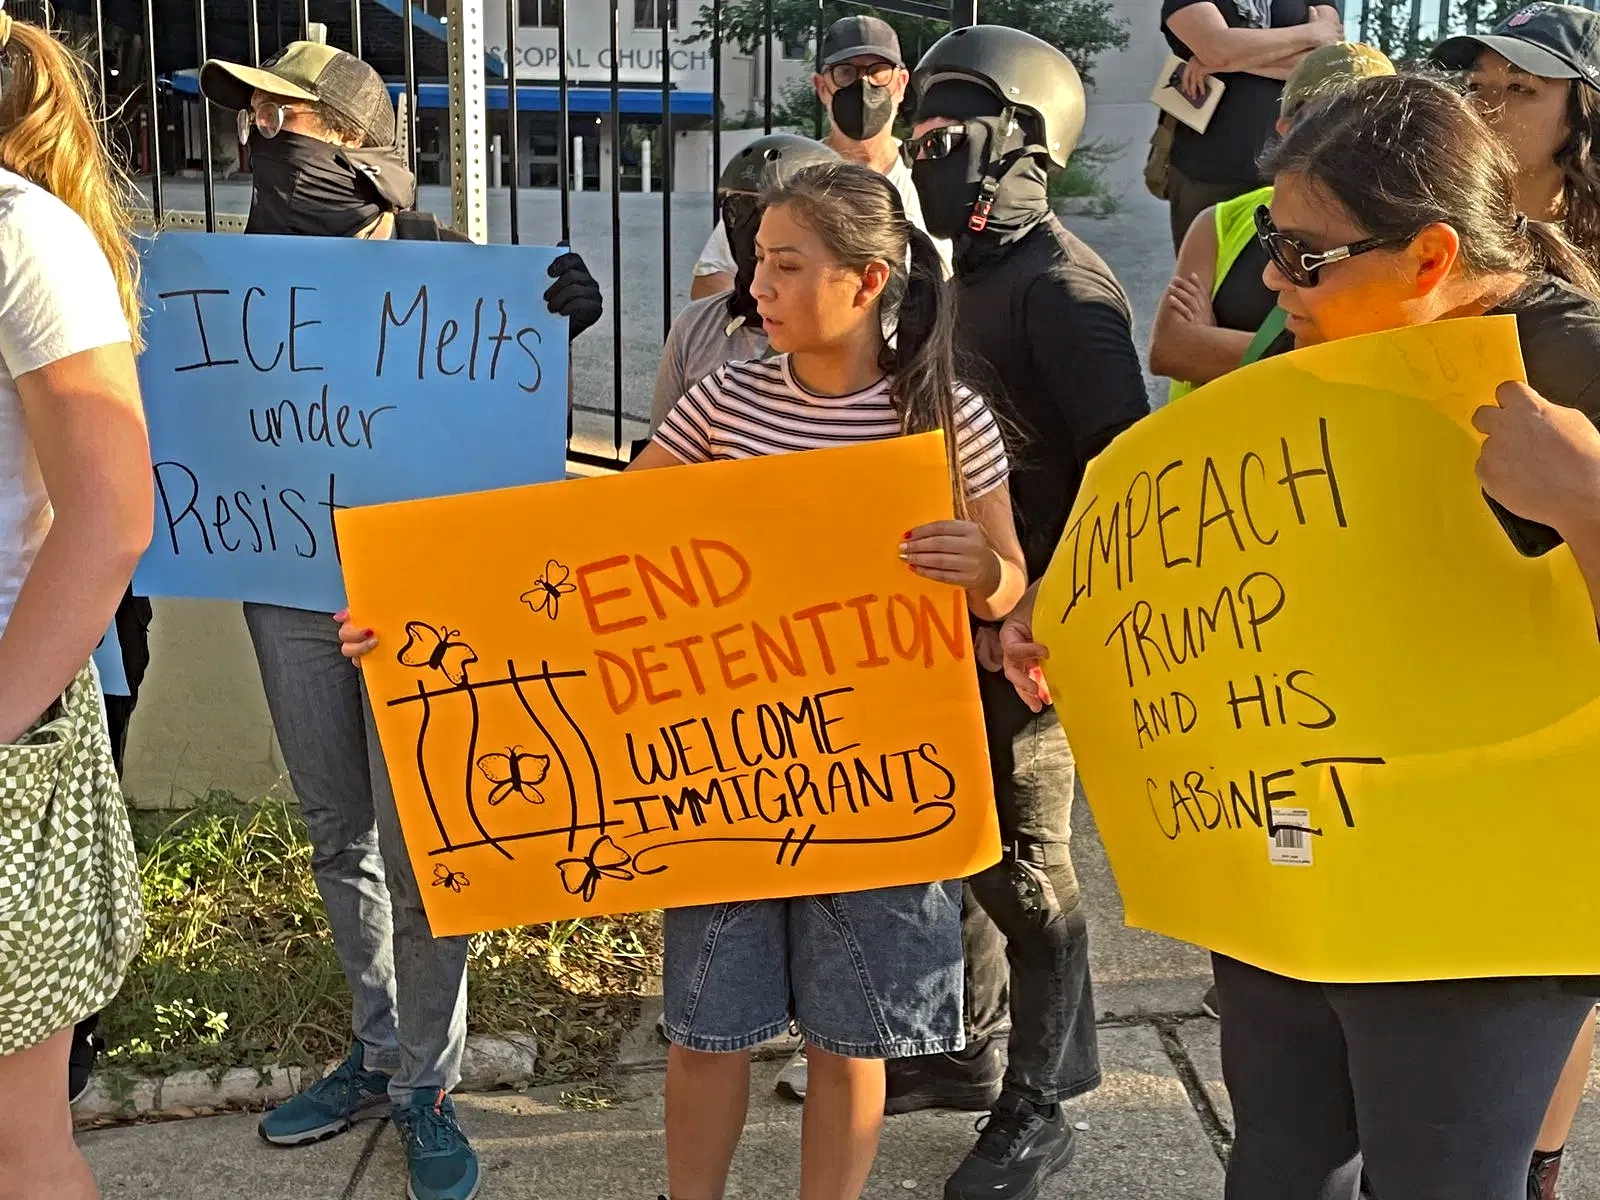 COPAL CHURCH
ICE Melts
under
Resist
END
DETENTION
WELCOME
IMMIGRANTS
IMPEACH
TRUMP
AND HiS
CABiNET